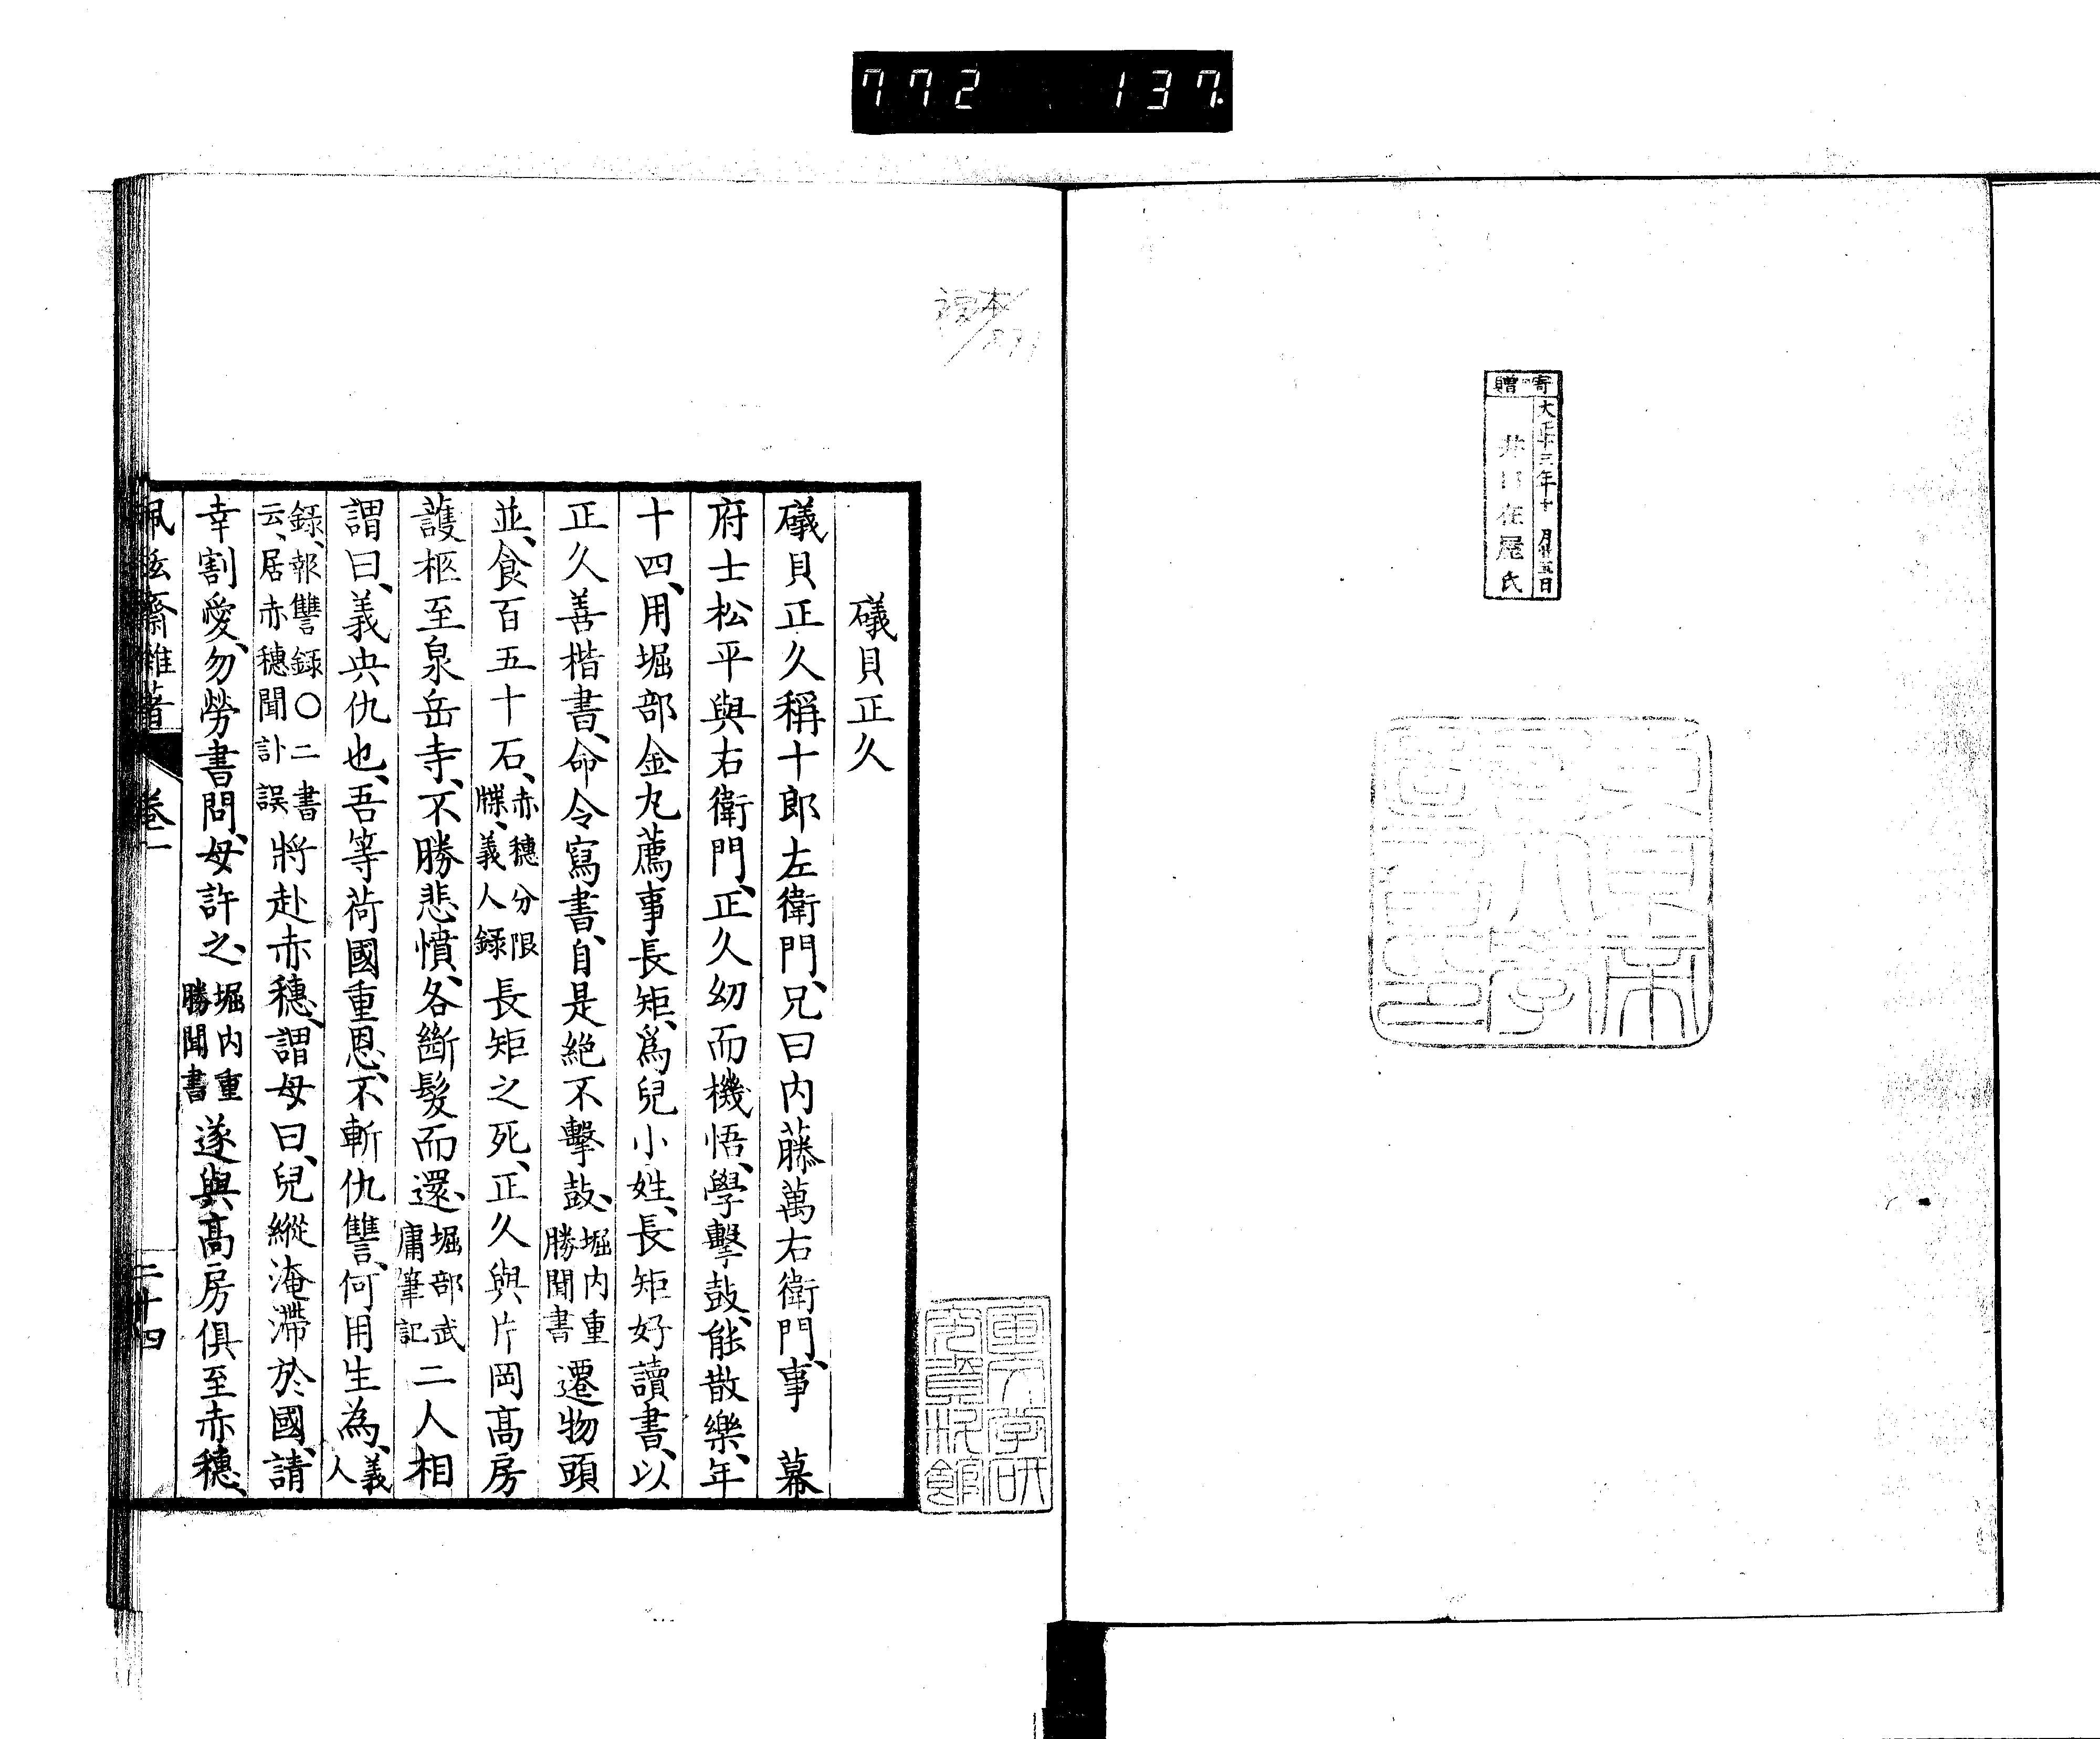 772 137.
寄贈
大正十三年十月廿五日
在屋氏
東京帝
國大學
圖書印
複本
国文学研
究資料館
礒貝正久
礒貝正久稱十郎左衛門、兄曰内藤萬右衛門、事 幕
府士松平與右衛門、正久幼而機悟、學擊鼓、能散樂、年
十四、用堀部金丸薦事長矩、爲兒小姓、長矩好讀書、以
正久善楷書、命令寫書、自是絶不擊鼓、堀内重勝聞書遷物頭
並、食百五十石、赤穗分限牒、義人録長矩之死、正久與片岡髙房
護柩至泉岳寺、不勝悲憤、各斷髮而還、堀部武庸筆記二人相
謂曰、義央仇也、吾等荷國重恩、不斬仇讐、何用生為、義人
録、報讐録〇二書云、居赤穗聞訃誤將赴赤穗、謂母曰、兒縱淹滯於國、請
幸割愛、勿勞書問、母許之、堀内重勝聞書遂與髙房俱至赤穗、
佩弦齋雜著 卷二 二十四